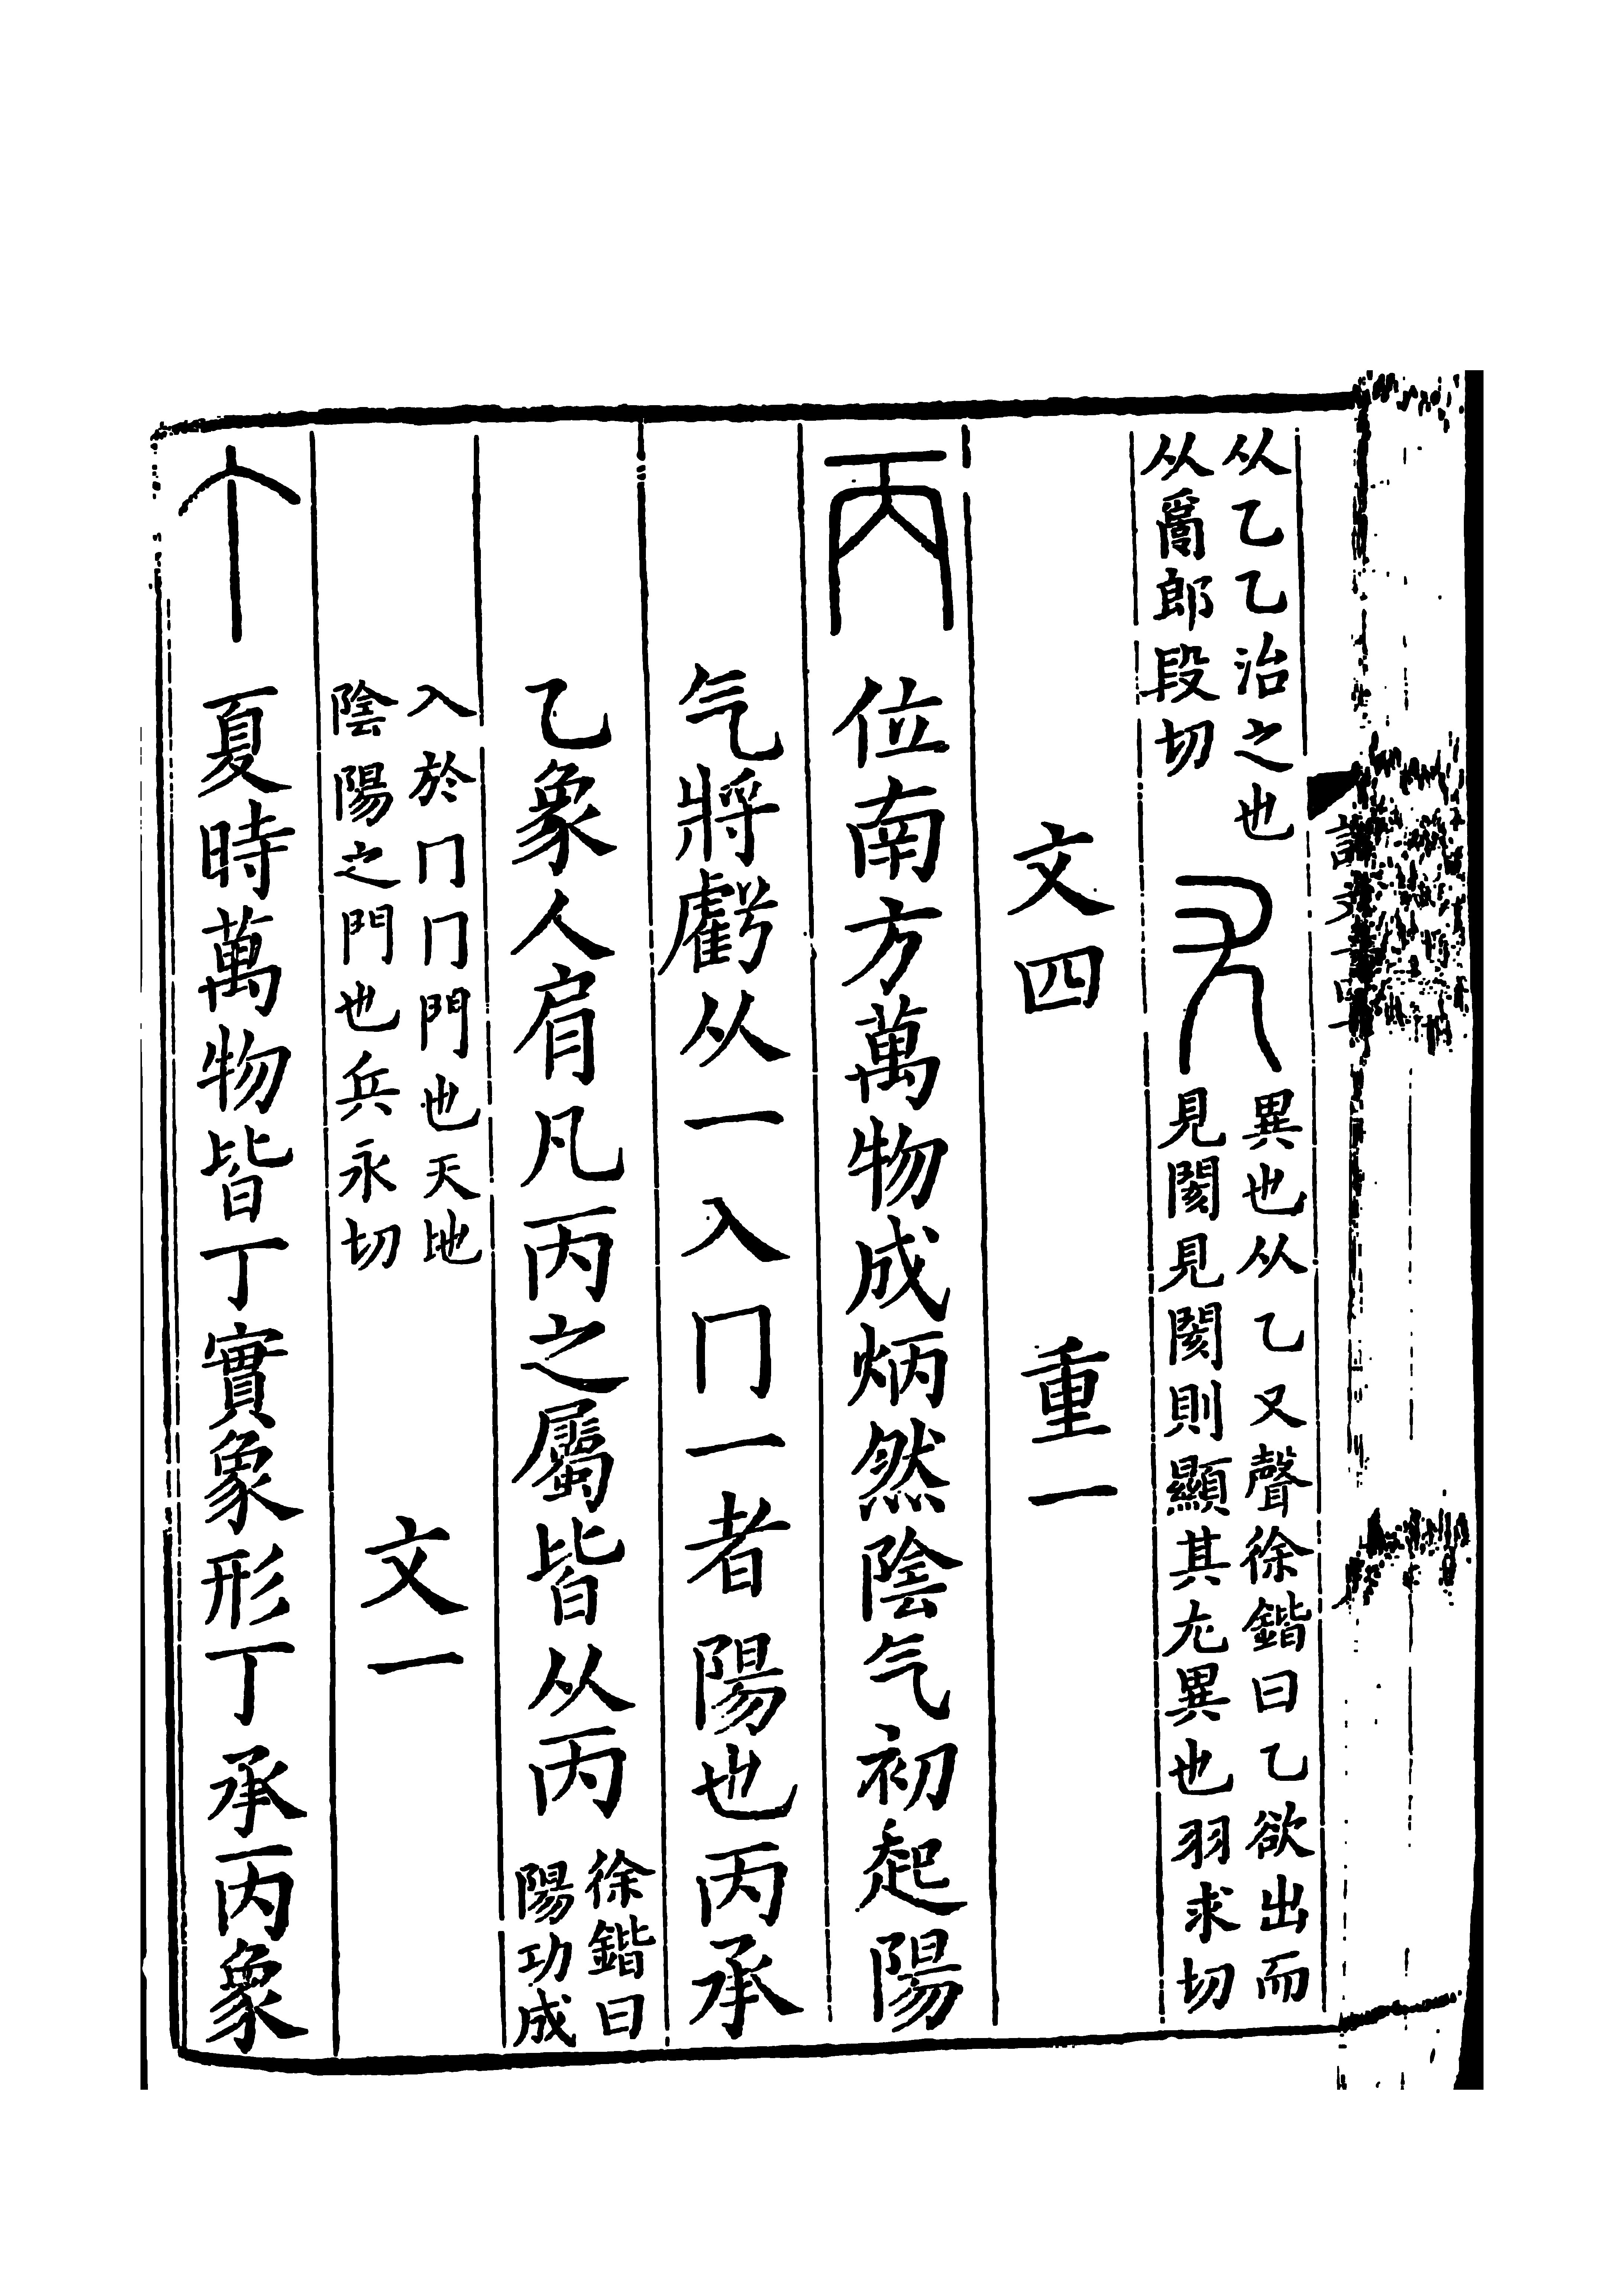 从乙乙治之也
从𤔔郎段切
尤
異也从乙又聲徐鍇曰乙欲出而
見閡見閡則顯其尢異也羽求切
文四　重一
丙　位南方萬物成炳然陰气初起陽
气將虧从一入冂一者陽也丙承
乙象人肩凡丙之屬皆从丙
徐鍇曰
陽功成
入於冂冂門也天地
陰陽之門也兵永切
文一
丁　夏時萬物皆丁實象形丁承丙象